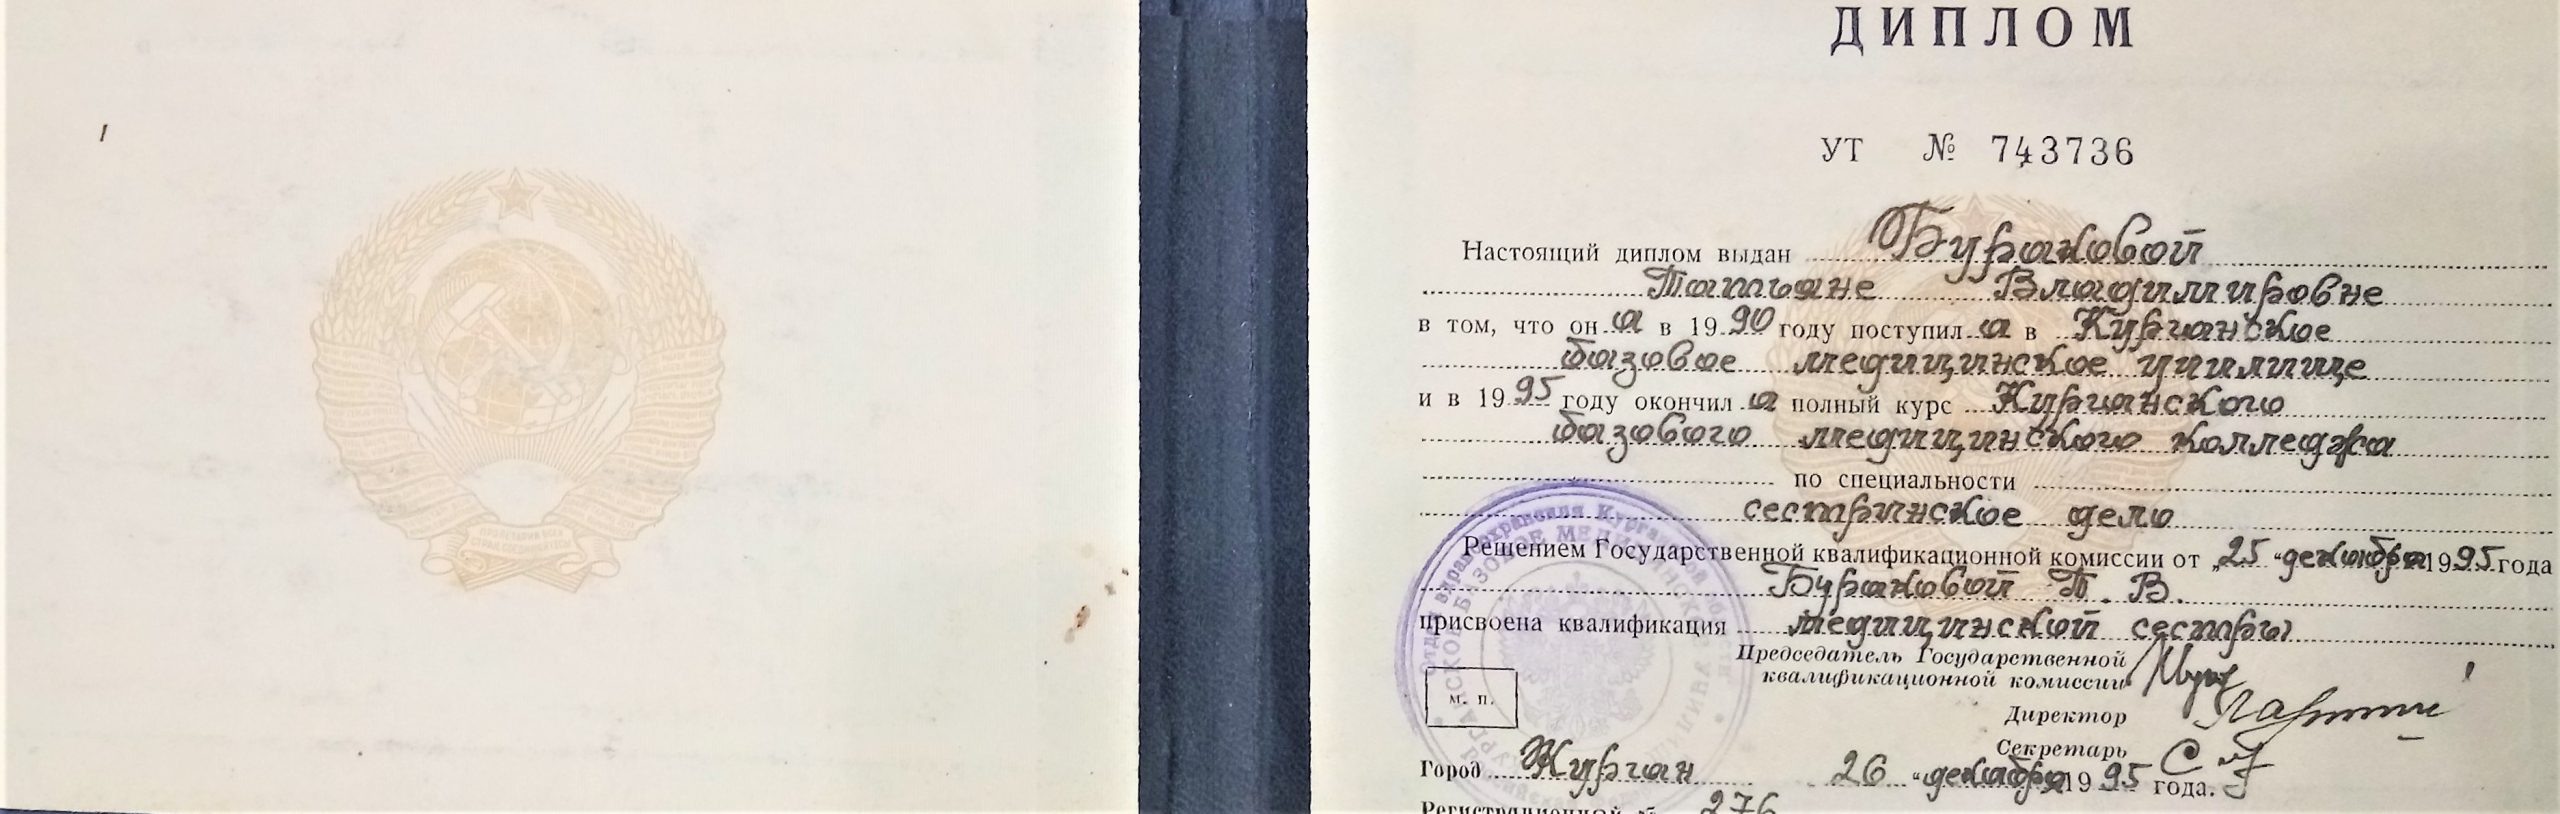 ДИПЛОМ
УТ № 743736
Настоящий диплом выдан Бураковой
Татьяне Владимировне
в том, что он а в 19 90 году поступил а в Курганское
базовое медицинское училище
и в 19 95 году окончил а полный курс Курганского
базового медицинского колледжа
по специальности
сестринское дело
Решением Государственной квалификационной комиссии от „25" декабря 19 95 года
Бураковой Т. В.
присвоена квалификация медицинской сестры
Председатель Государственной
квалификационной комиссии
Директор
Секретарь
м. п.
Город Курган 26 "декабря 19 95 года.
Регистрационный № 276